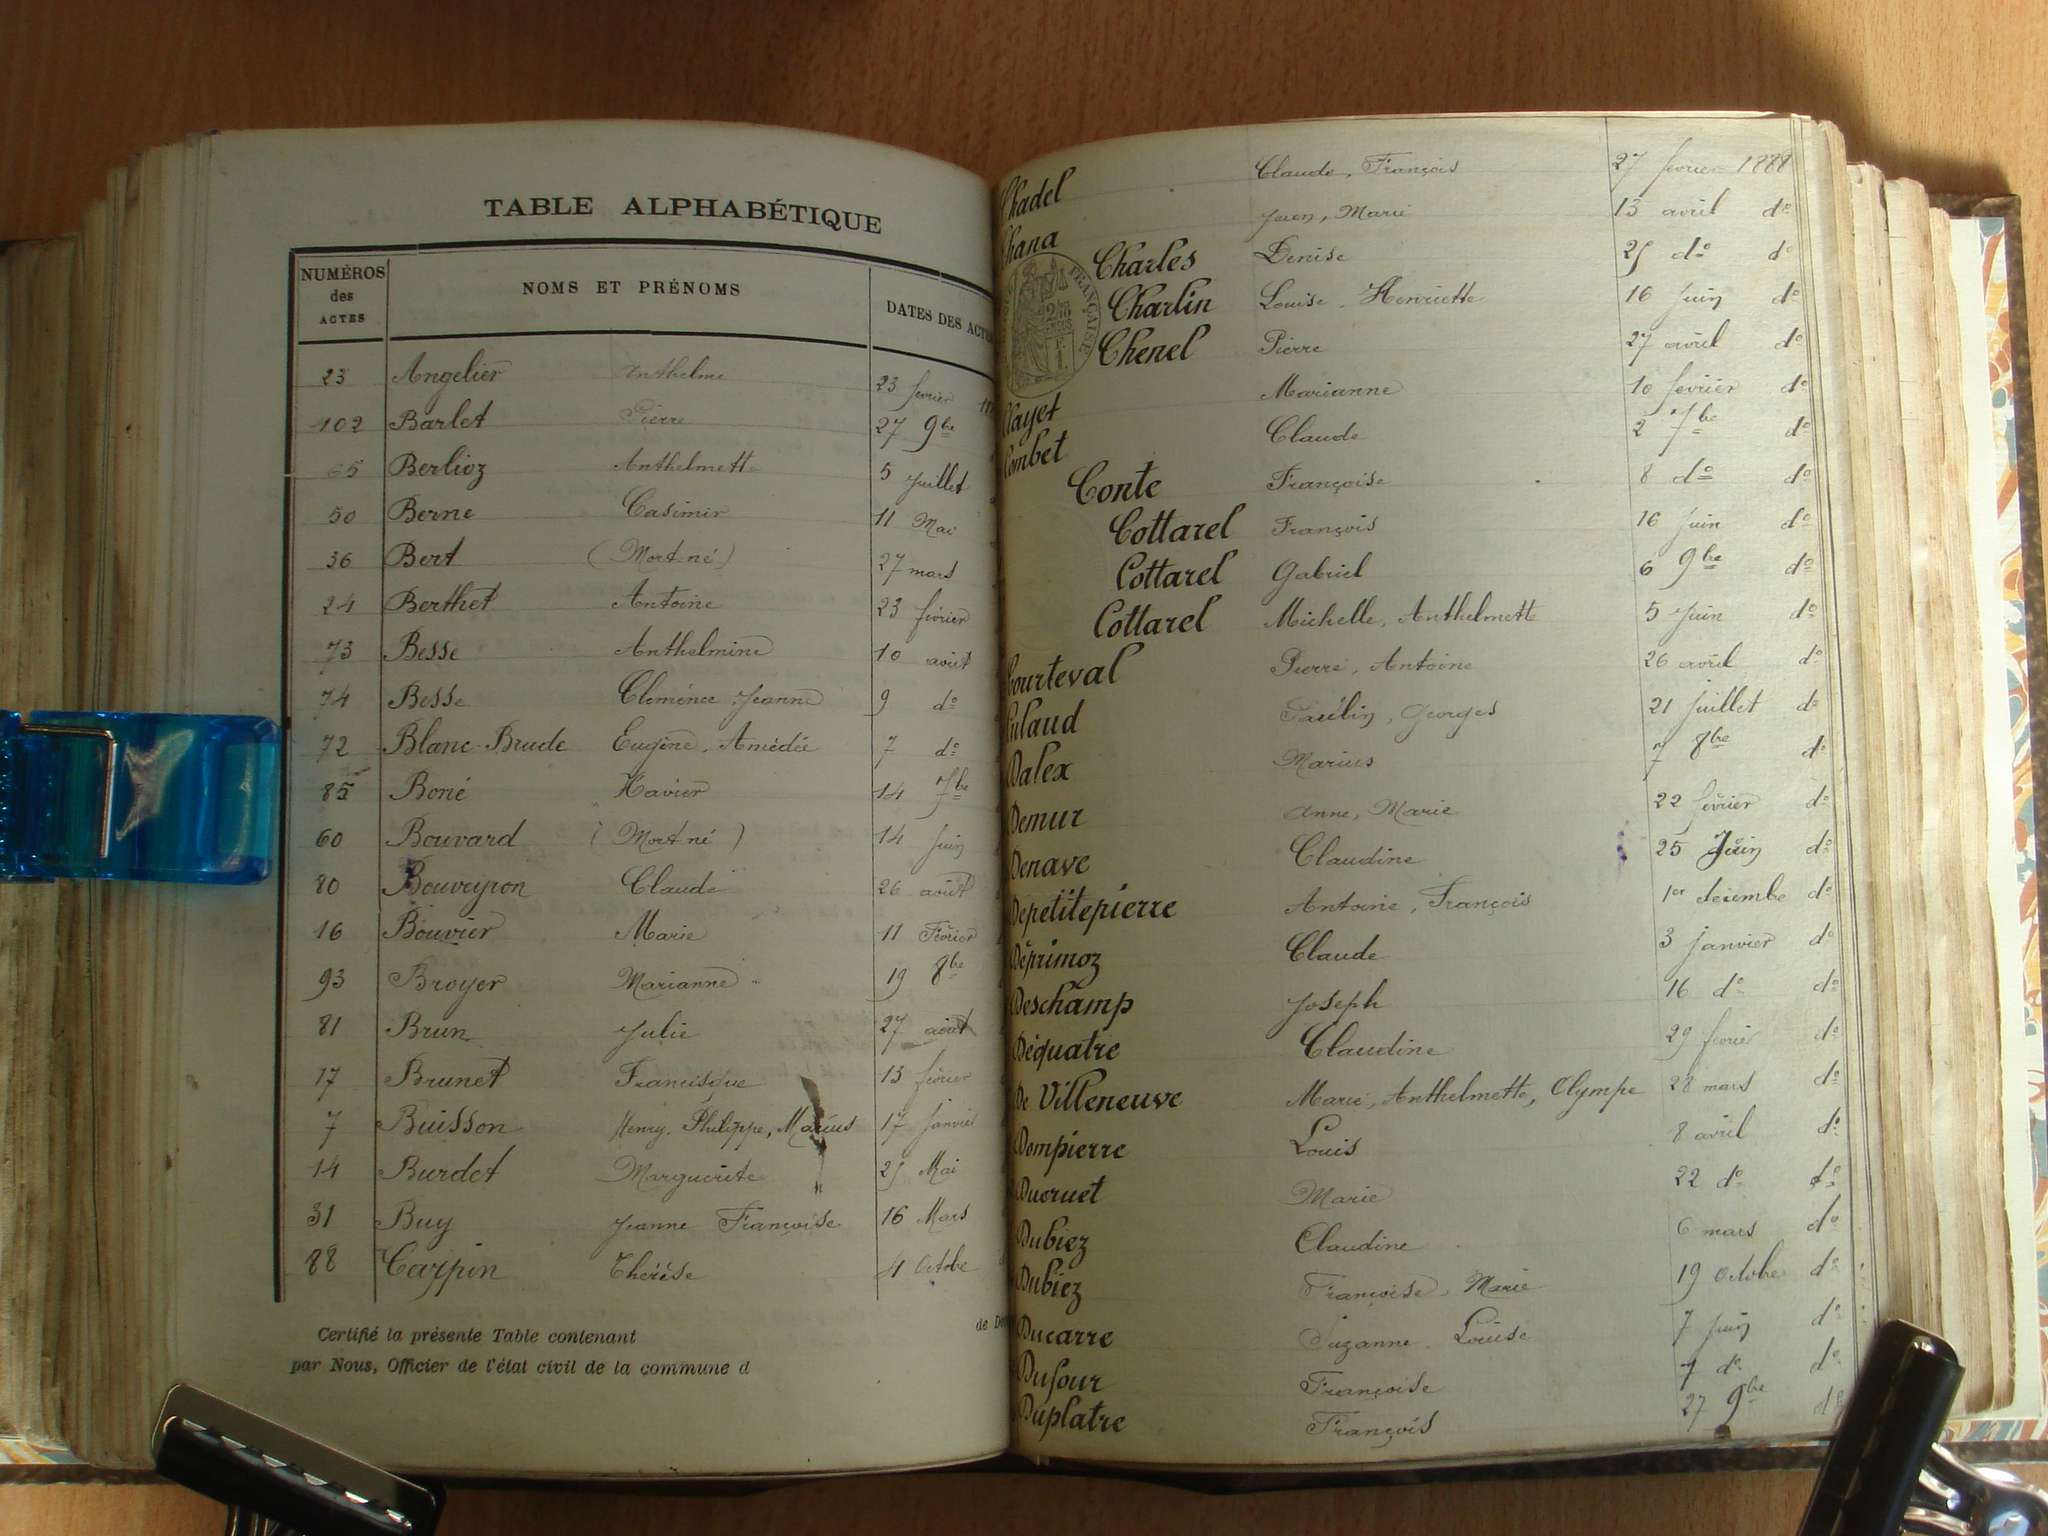 TABLE ALPHABÉTIQUE
NUMÉROS des ACTES NOMS ET PRÉNOMS DATES DES ACTES
23 Angelier Anthelme 23 février
102 Barlet Pierre 27 9bre
65 Berlioz Anthelmette 5 Juillet
50 Berne Casimir 11 Mai
36 Bert (Mort-né) 27 mars
24 Berthet Antoine 23 février
73 Besse Anthelmine 10 août
74 Besse Clemence Jeanne 9 do
72 Blanc-Brude Eugène, Amédée 7 do
85 Boné Xavier 14 7bre
60 Bouvard (Mort né) 14 Juin
80 Bouveyron Claude 26 août
16 Bouvier Marie 11 Février
93 Broyer Marianne 19 8bre
81 Brun Julie 27 août
17 Brunet Francisque 13 février
7 Buisson Henry, Philippe, Marius 17 Janvier
14 Burdet Marguerite 25 Mai
31 Buy Jeanne Françoise 16 Mars
88 Carpin Thérèse 4 Octobe
Certifié la présente Table contenant
par Nous, Officier de l'état civil de la commune d
Chadel Claude, François 27 fevrier 1888
Chana Jean, Marie 13 avril do
Charles Denise 25 do do
Charlin Louise, Henriette 16 Juin do
Chenel Pierre 27 avril do
Clayet Marianne 10 fevrier do
Combet Claude 2 7bre do
Conte Françoise 8 do do
Cottarel François 16 Juin do
Cottarel Gabriel 6 9bre do
Cottarel Michelle, Anthelmette 5 Juin do
Courteval Pierre, Antoine 26 avril do
Georges 21 Juillet do
Dalex Marius 7 8bre do
Demur Anne, Marie 22 février do
Denave Claudine 25 Juin do
Depetitepierre Antoine, François 1er decembe do
Déprimoz Claude 3 janvier do
Deschamp Joseph 16 do do
Déquatre Claudine 29 fevrier do
De Villeneuve Marie, Anthelmette, Olympe 28 mars do
Dompierre Louis 8 avril do
Ducruet Marie 22 do do
Dubiez Claudine 6 mars do
Dubiez Françoise, Marie 19 octobe do
Ducarre Suzanne Louise 7 Juin do
Dufour Françoise 7 do do
Duplatre François 27 9bre do